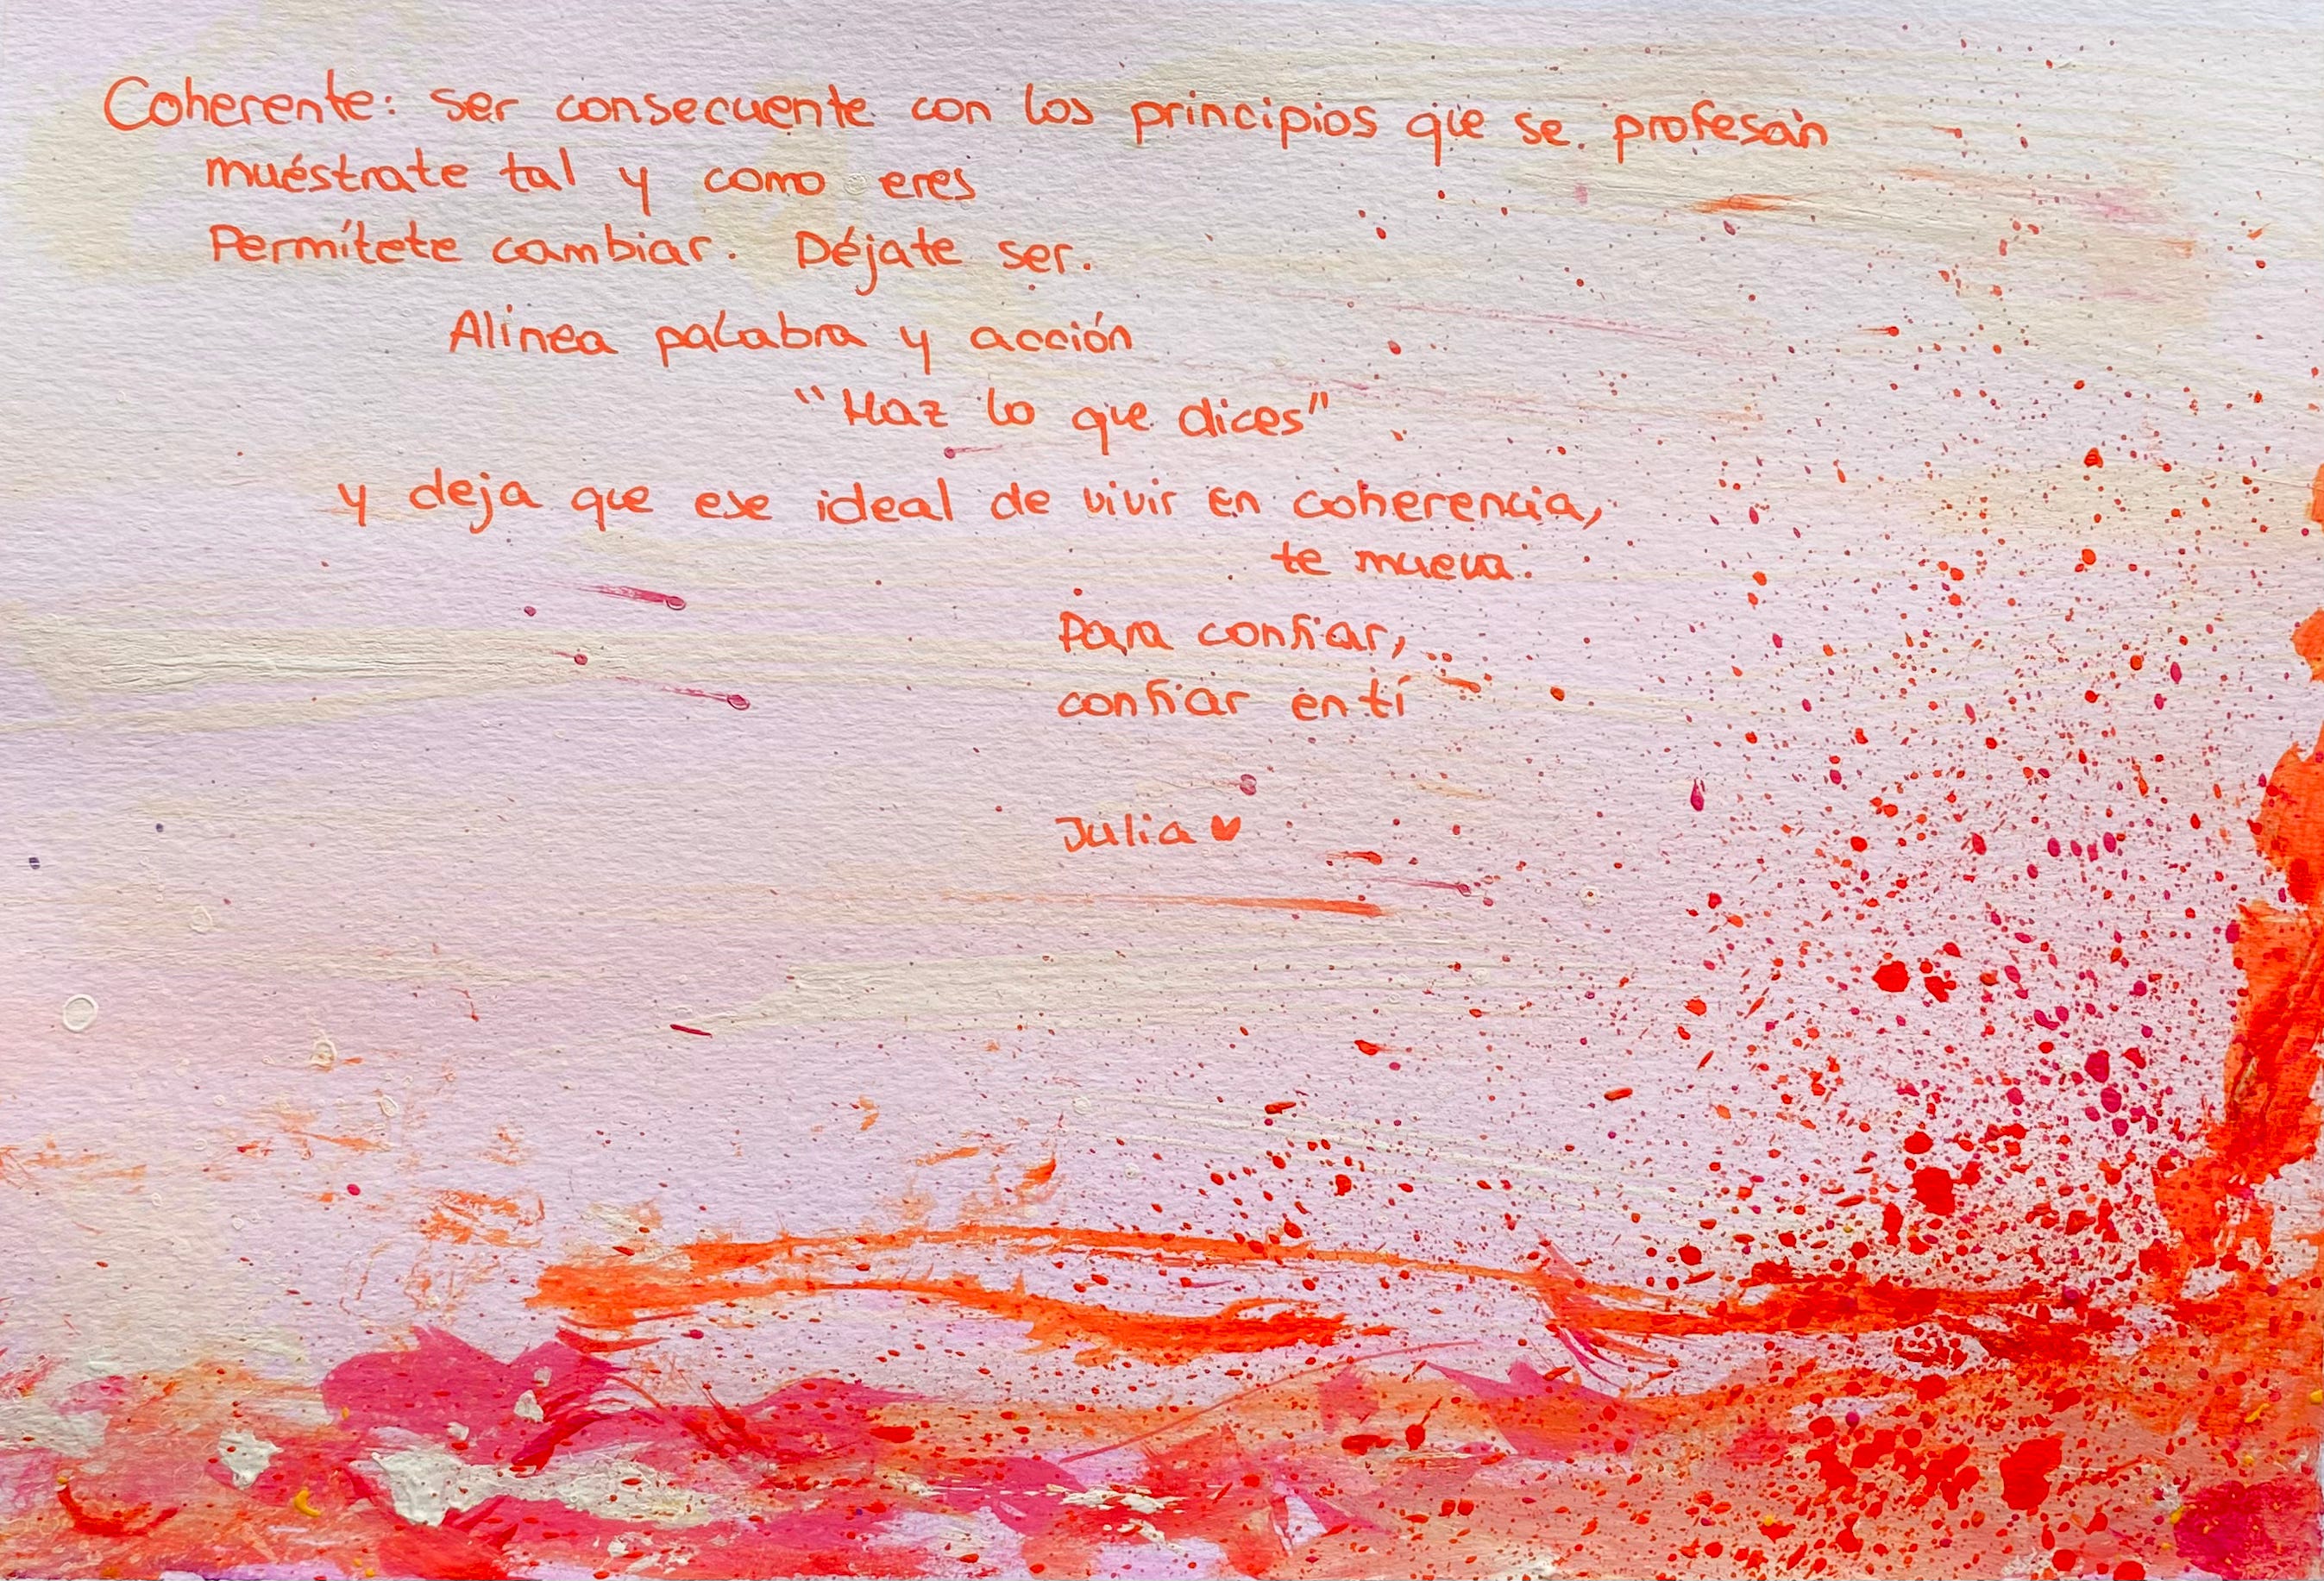 Coherente: ser consecuente con los principios que se profesan
muéstrate tal y como eres
Permítete cambiar. Déjate ser.
Alinea palabra y acción
"Haz lo que dices"
y deja que ese ideal de vivir en coherencia,
te mueva.
Para confiar,
confiar en tí
Julia ♥